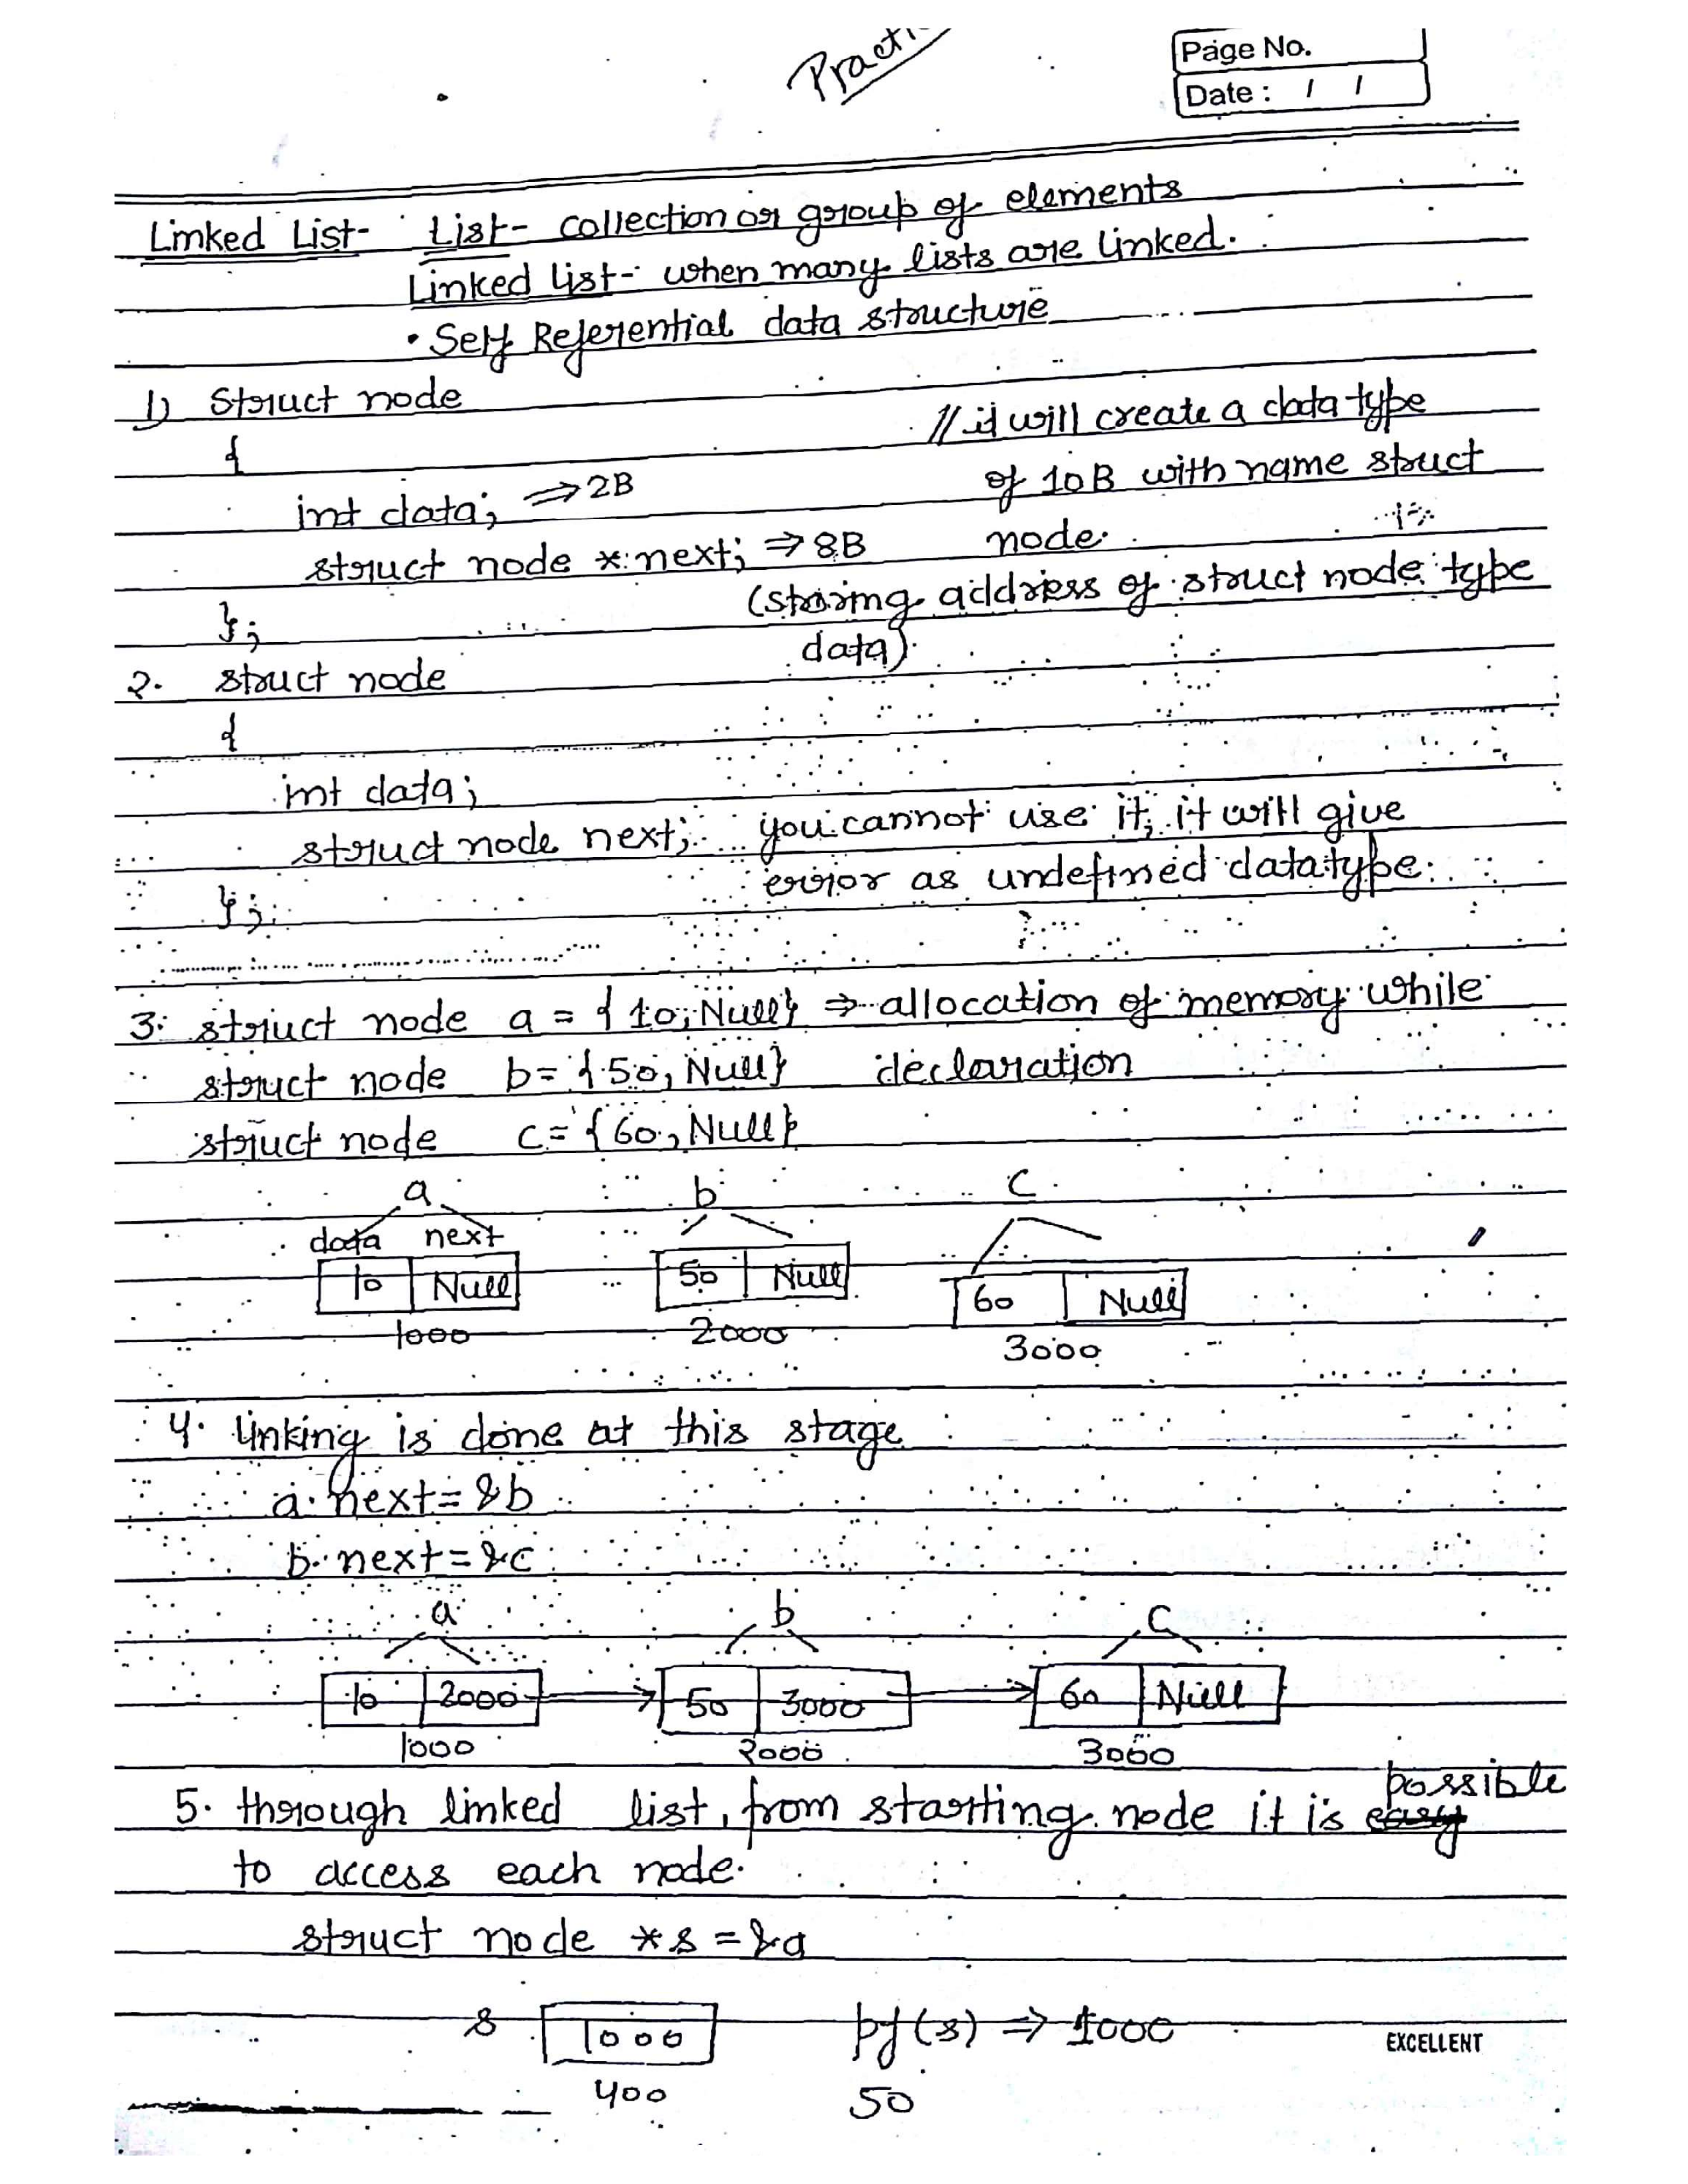 Practi
Page No.
Date : / /
Linked List- List- collection or group of elements
Linked list- when many lists are linked.
• Self Referential data structure
1) Struct node
{ // it will create a data type
int data; ⇒ 2B of 10B with name struct
struct node *next; ⇒ 8B node.
}; (storing address of struct node type
data)
2. struct node
{
int data;
struct node next; you cannot use it, it will give
}; error as undefined datatype.
3. struct node a = {10, Null} ⇒ allocation of memory while
struct node b = {50, Null} declaration
struct node c = {60, Null}
a b c
data next
10 Null 50 Null 60 Null
1000 2000 3000
4. linking is done at this stage
a.next = &b
b.next = &c
a b c
10 2000 50 3000 60 Null
1000 2000 3000
5. through linked list, from starting node it is possible
to access each node.
struct node *s = &a
s 1000 pf(s) ⇒ 1000
400 50
EXCELLENT